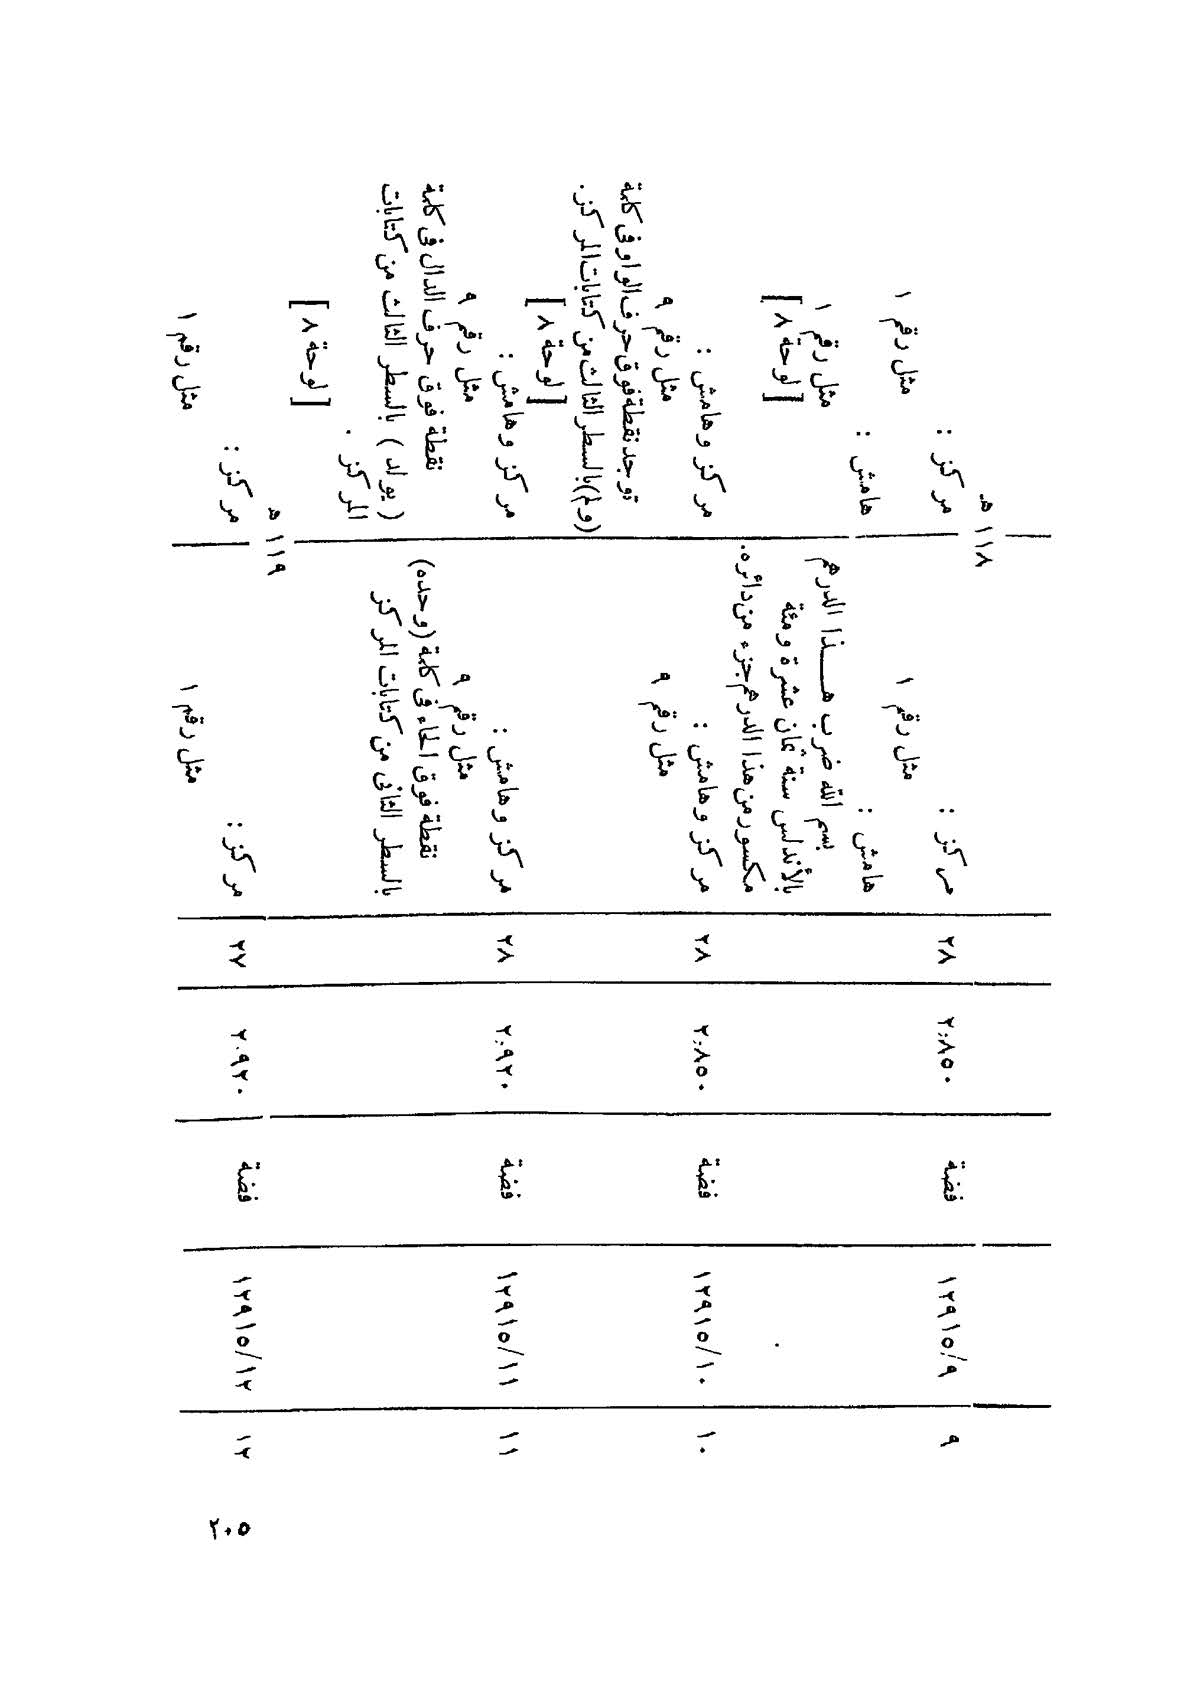 ١١٨ هـ
٩
١٢٩١٥/٩
فضة
٢٫٨٥٠
٢٨
مركز :
مثل رقم ١
هامش :
بسم الله ضرب هـذا الدرهم
بالأندلس سنة ثمان عشرة ومئة
مكسور من هذا الدرهم جزء من دائره.
مركز :
مثل رقم ١
هامش :
مثل رقم ١
[ لوحة ٨ ]
١٠
١٢٩١٥/١٠
فضة
٢٫٨٥٠
٢٨
مركز وهامش :
مثل رقم ٩
مركز وهامش :
مثل رقم ٩
توجد نقطة فوق حرف الواو فى كلمة
(ولم) بالسطر الثالث من كتابات المركز.
[ لوحة ٨ ]
١١
١٢٩١٥/١١
فضة
٢٫٩٢٠
٢٨
مركز وهامش :
مثل رقم ٩
نقطة فوق الحاء فى كلمة (وحده)
بالسطر الثانى من كتابات المركز
مركز وهامش :
مثل رقم ٩
نقطة فوق حرف الدال فى كلمة
( يولد ) بالسطر الثالث من كتابات
المركز .
[ لوحة ٨ ]
١١٩ هـ
١٢
١٢٩١٥/١٢
فضة
٢٫٩٢٠
٢٧
مركز :
مثل رقم ١
مركز :
مثل رقم ١
٢٠٥